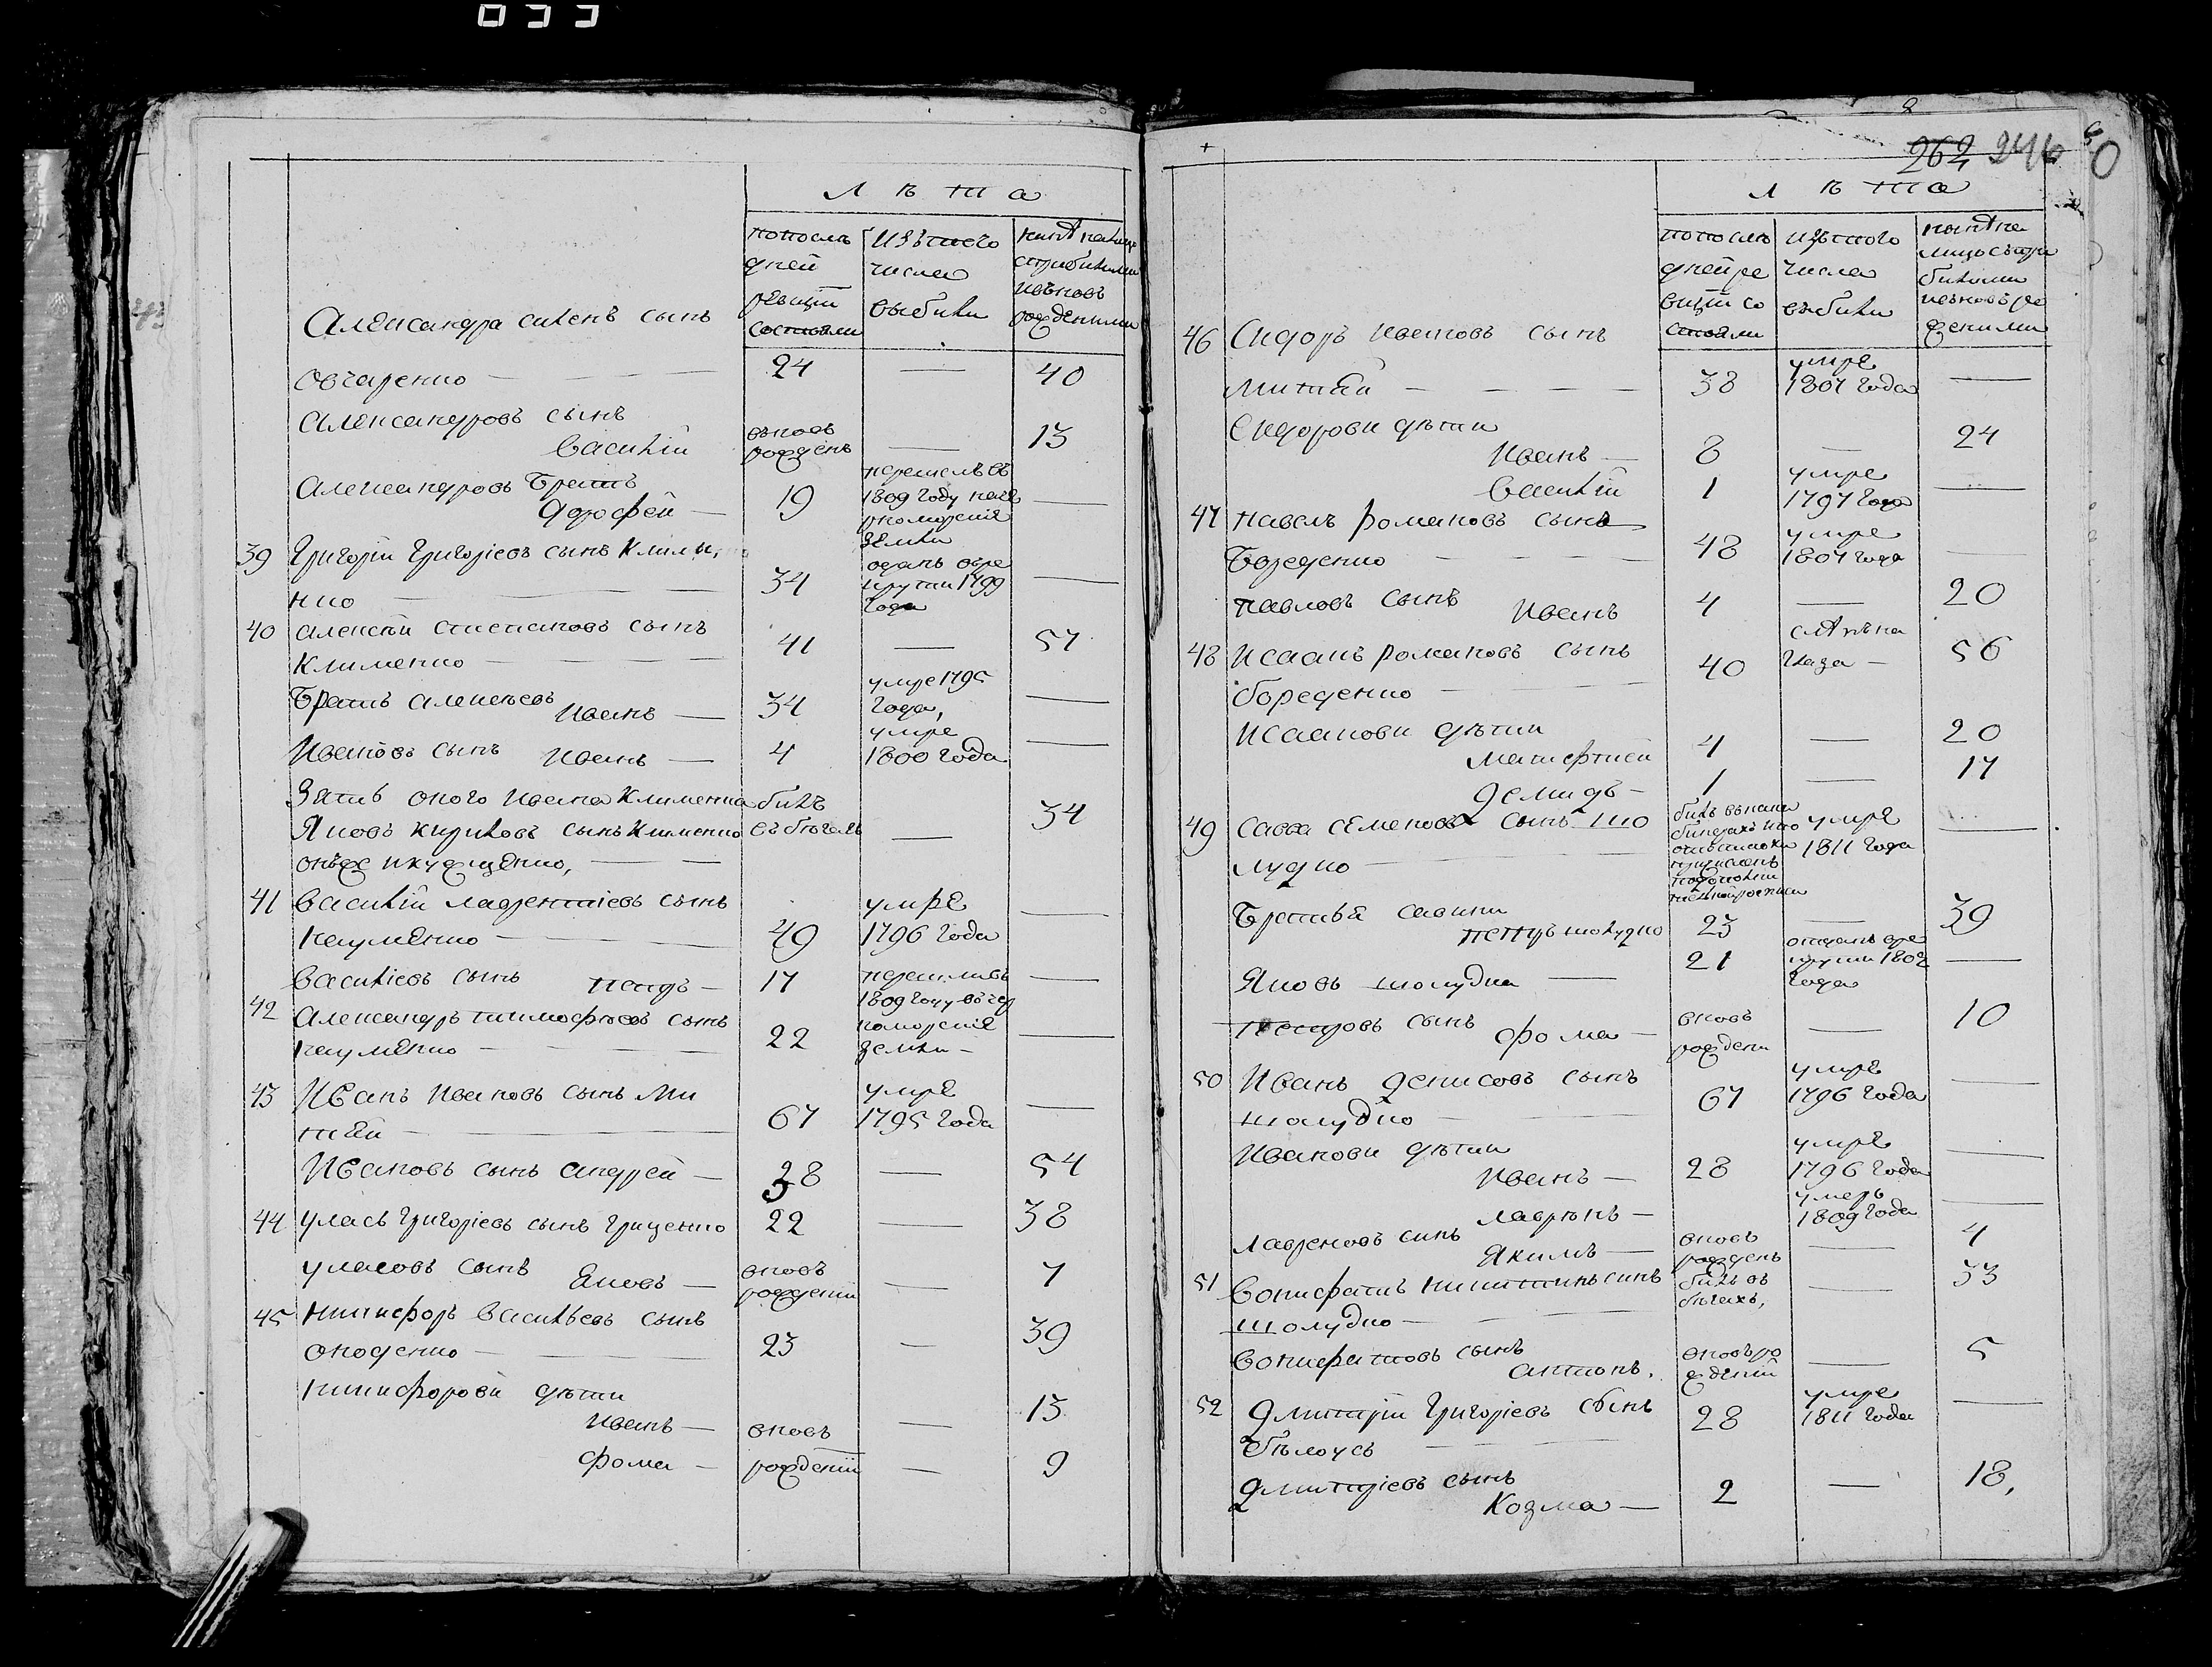 033
Лѣта
попослѣ
дней
ревизіи
состояли
Изътого
числа
выбили
Александра силенъ сынъ
овчаренко — 24 — 40
Александровъ сынъ
Василій вновь рожденъ — 13
Александровъ братъ
Дорофей — 19 перешелъ въ 1809 году на черноморскія земли —
39 Григорій Григоріевъ сынъ Климе
нко — 34 отданъ врекрути 1799 года —
40 Алексѣй Степановъ сынъ
Клименко — 41 — 57
братъ Алексѣевъ Иванъ — 34 умре 1795 года, —
Ивановъ сынъ Иванъ — 4 умре 1800 года —
Зять оного Ивана Клименка билъ
Яковъ Кириловъ сынъ Клименко въ бѣгахъ — 34
онъже
41 Василій Лаврентіевъ сынъ
Науменко — 49 умре 1796 года —
Василіевъ сынъ Петръ — 17 перешли въ —
42 Александръ Тимофѣевъ сынъ
Науменко — 22 1809 году въ черноморскія земли —
43 Иванъ Ивановъ сынъ Ми
тяй — 67 умре 1795 года —
Ивановъ сынъ Андрей — 38 — 54
44 Уласъ Григоріевъ сынъ Гриценко 22 — 38
Уласовъ сынъ Яковъ — вновь рожденни — 7
45 Никифоръ Васильевъ сынъ
23 — 39
Никифорови дѣти
Иванъ — вновь — 13
Фома — рожденій — 9
262 246
Лѣта
попослѣ
дней ре
визіи со
стояли
изътого
числа
выбили
нынѣ на
лицо съпри
билими
46 Сидоръ Ивановъ сынъ
Митяй — 38 умре 1807 года —
Сидорови дѣти
Иванъ — 8 — 24
Василій 1 умре 1797 года —
47 Павелъ Романовъ сынъ
Бореденко — 48 умре 1807 года
Павловъ сынъ Иванъ 4 — 20
48 Исаакъ Романовъ сынъ
бореденко — 40 слѣпъ на глаза — 56
Исаакови дѣти
4 — 20
Демидъ — 1 — 17
49 Савва Семеновъ сынъ Шо
лудко — умре 1811 года —
Братья Савини
Петръ шолудко 23 — 39
Яковъ шолудко — 21 отданъ врекрути 1802 года —
Петровъ сынъ Фома — вновь рожденни — 10
50 Иванъ Денисовъ сынъ
шолудко — 67 умре 1796 года —
Иванови дѣти
Иванъ — 28 умре 1796 года —
Лаврѣнъ — умеръ 1809 года —
Лавреновъ синъ
Якимъ — вновь рожденъ — 4
51 Вонифатъ Никитинъ синъ
шолудко — билъ въ бѣгахъ, — 33
Вонифатовъ сынъ
Антонъ. вновь рожденій — 5
52 Дмитрій Григоріевъ сынъ
бѣлоусъ — 28 умре 1811 года —
Дмитріевъ сынъ
Козма — 2 — 18,